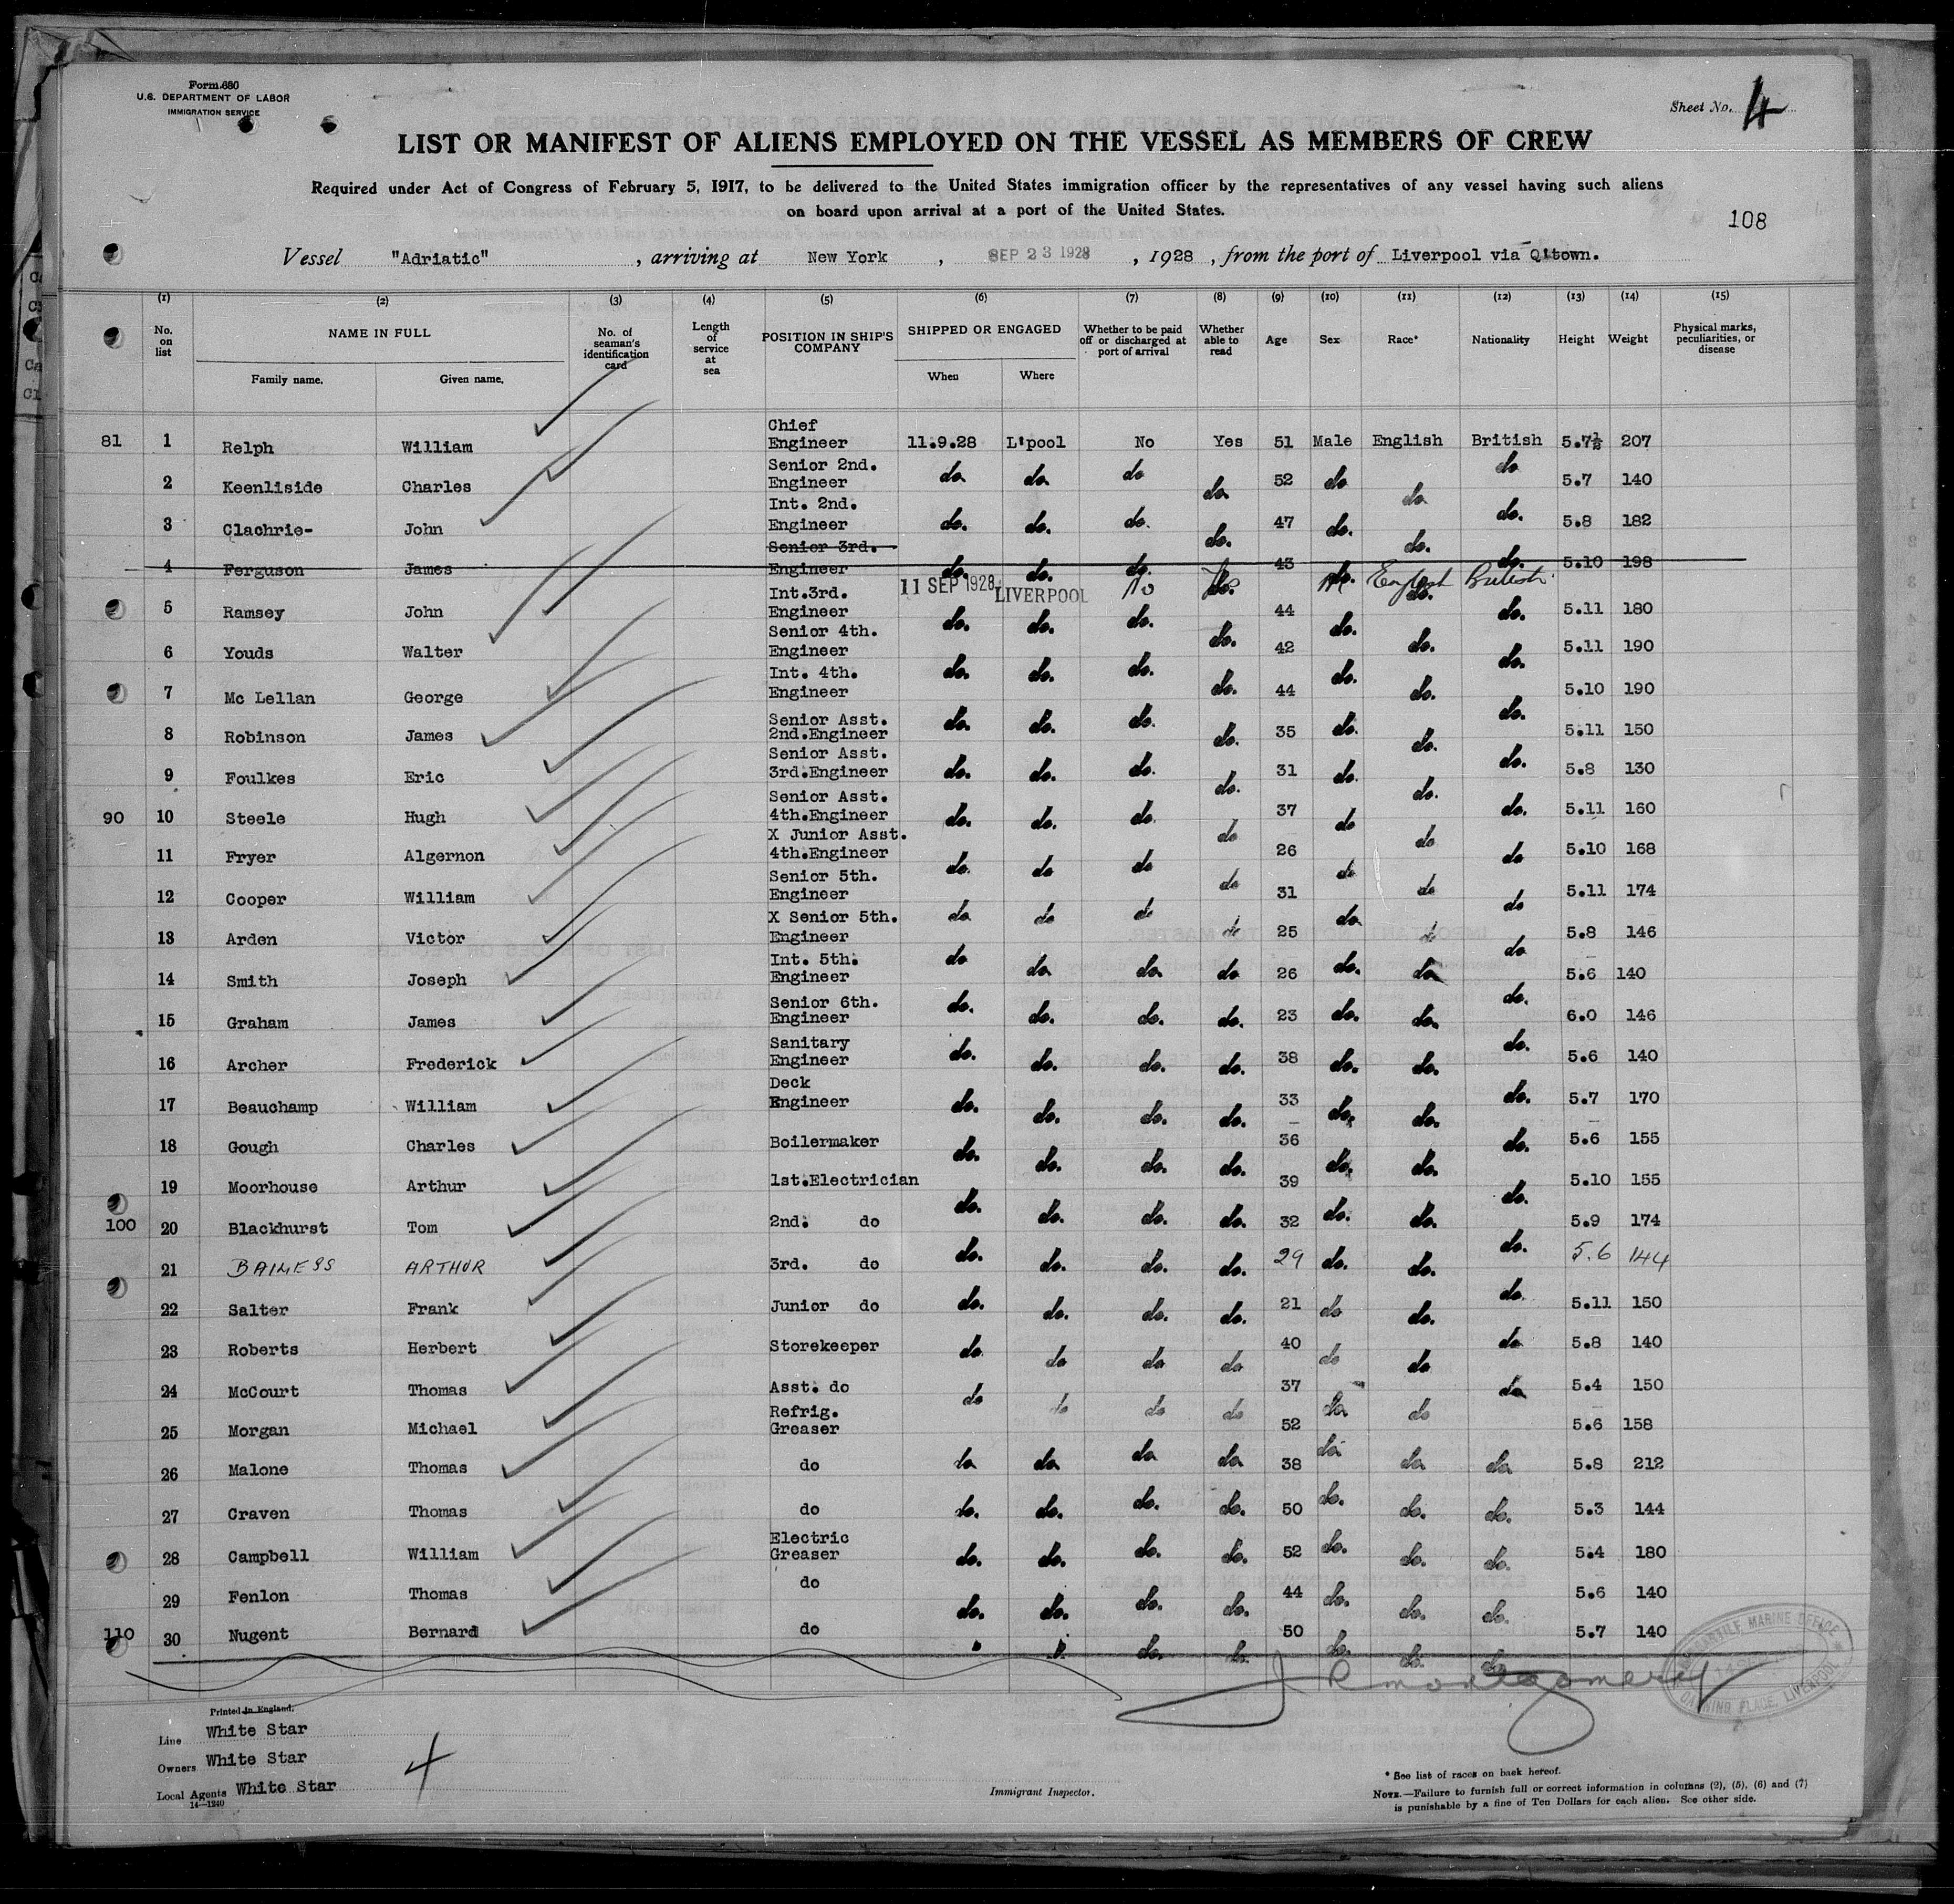 Form 680
U.S. DEPARTMENT OF LABOR
IMMIGRATION SERVICE
Sheet No. 4
LIST OR MANIFEST OF ALIENS EMPLOYED ON THE VESSEL AS MEMBERS OF CREW
Required under Act of Congress of February 5, 1917, to be delivered to the United States immigration officer by the representatives of any vessel having such aliens
on board upon arrival at a port of the United States.
108
Vessel "Adriatic", arriving at New York, SEP 23 1928, 1928, from the port of Liverpool via Qtown.
(1) (2) (3) (4) (5) (6) (7) (8) (9) (10) (11) (12) (13) (14) (15)
No. on list NAME IN FULL Family name. Given name. No. of seaman's identification card Length of service at sea POSITION IN SHIP'S COMPANY SHIPPED OR ENGAGED When Where Whether to be paid off or discharged at port of arrival Whether able to read Age Sex Race* Nationality Height Weight Physical marks, peculiarities, or disease
81 1 Relph William Chief Engineer 11.9.28 L'pool No Yes 51 Male English British 5.7½ 207
2 Keenliside Charles Senior 2nd. Engineer do do do do 52 do do do 5.7 140
3 Clachrie- John Int. 2nd. Engineer do. do. do. do. 47 do. do. do. 5.8 182
4 Ferguson James Senior 3rd. Engineer do. do. do. do. 43 do. do. do. 5.10 198
11 SEP 1928 LIVERPOOL No M English British
5 Ramsey John Int.3rd. Engineer do. do. do. do. 44 do. do. do. 5.11 180
6 Youds Walter Senior 4th. Engineer do. do. do. do. 42 do. do. do. 5.11 190
7 Mc Lellan George Int. 4th. Engineer do. do. do. do. 44 do. do. do. 5.10 190
8 Robinson James Senior Asst. 2nd.Engineer do. do. do. do. 35 do. do. do. 5.11 150
9 Foulkes Eric Senior Asst. 3rd.Engineer do. do. do. do. 31 do. do. do. 5.8 130
90 10 Steele Hugh Senior Asst. 4th.Engineer do. do. do. do 37 do do do. 5.11 160
11 Fryer Algernon X Junior Asst. 4th.Engineer do. do do do 26 do do do 5.10 168
12 Cooper William Senior 5th. Engineer do do do do 31 do do do 5.11 174
13 Arden Victor X Senior 5th. Engineer do do do do 25 do do do 5.8 146
14 Smith Joseph Int. 5th. Engineer do. do. do. do 26 do. do do. 5.6 140
15 Graham James Senior 6th. Engineer do. do. do. do. 23 do. do. do. 6.0 146
16 Archer Frederick Sanitary Engineer do. do. do. do. 38 do. do. do. 5.6 140
17 Beauchamp William Deck Engineer do. do. do. do. 33 do. do. do. 5.7 170
18 Gough Charles Boilermaker do. do. do. do. 36 do. do. do. 5.6 155
19 Moorhouse Arthur 1st.Electrician do. do. do. do. 39 do. do. do. 5.10 155
100 20 Blackhurst Tom 2nd. do do. do. do. do. 32 do. do. do. 5.9 174
21 ARTHUR 3rd. do do. do. do. do. 29 do. do. do. 5.6 144
22 Salter Frank Junior do do. do. do. do. 21 do do. do. 5.11 150
23 Roberts Herbert Storekeeper do do do do 40 do do do 5.8 140
24 McCourt Thomas Asst. do do do do do 37 do do do 5.4 150
25 Morgan Michael Refrig. Greaser 52 5.6 158
26 Malone Thomas do do do do do 38 do do do 5.8 212
27 Craven Thomas do do. do. do. do. 50 do. do. do. 5.3 144
28 Campbell William Electric Greaser do. do. do. do. 52 do. do. do. 5.4 180
29 Fenlon Thomas do do. do. do. do. 44 do. do. do. 5.6 140
110 30 Nugent Bernard do do. do. 50 do. do. do. 5.7 140
J R Montgomery
MERCANTILE MARINE OFFICE
CANNING PLACE, LIVERPOOL
Printed in England.
Line White Star
Owners White Star
Local Agents White Star
14—1240
4
Immigrant Inspector.
* See list of races on back hereof.
NOTE.—Failure to furnish full or correct information in columns (2), (5), (6) and (7)
is punishable by a fine of Ten Dollars for each alien. See other side.